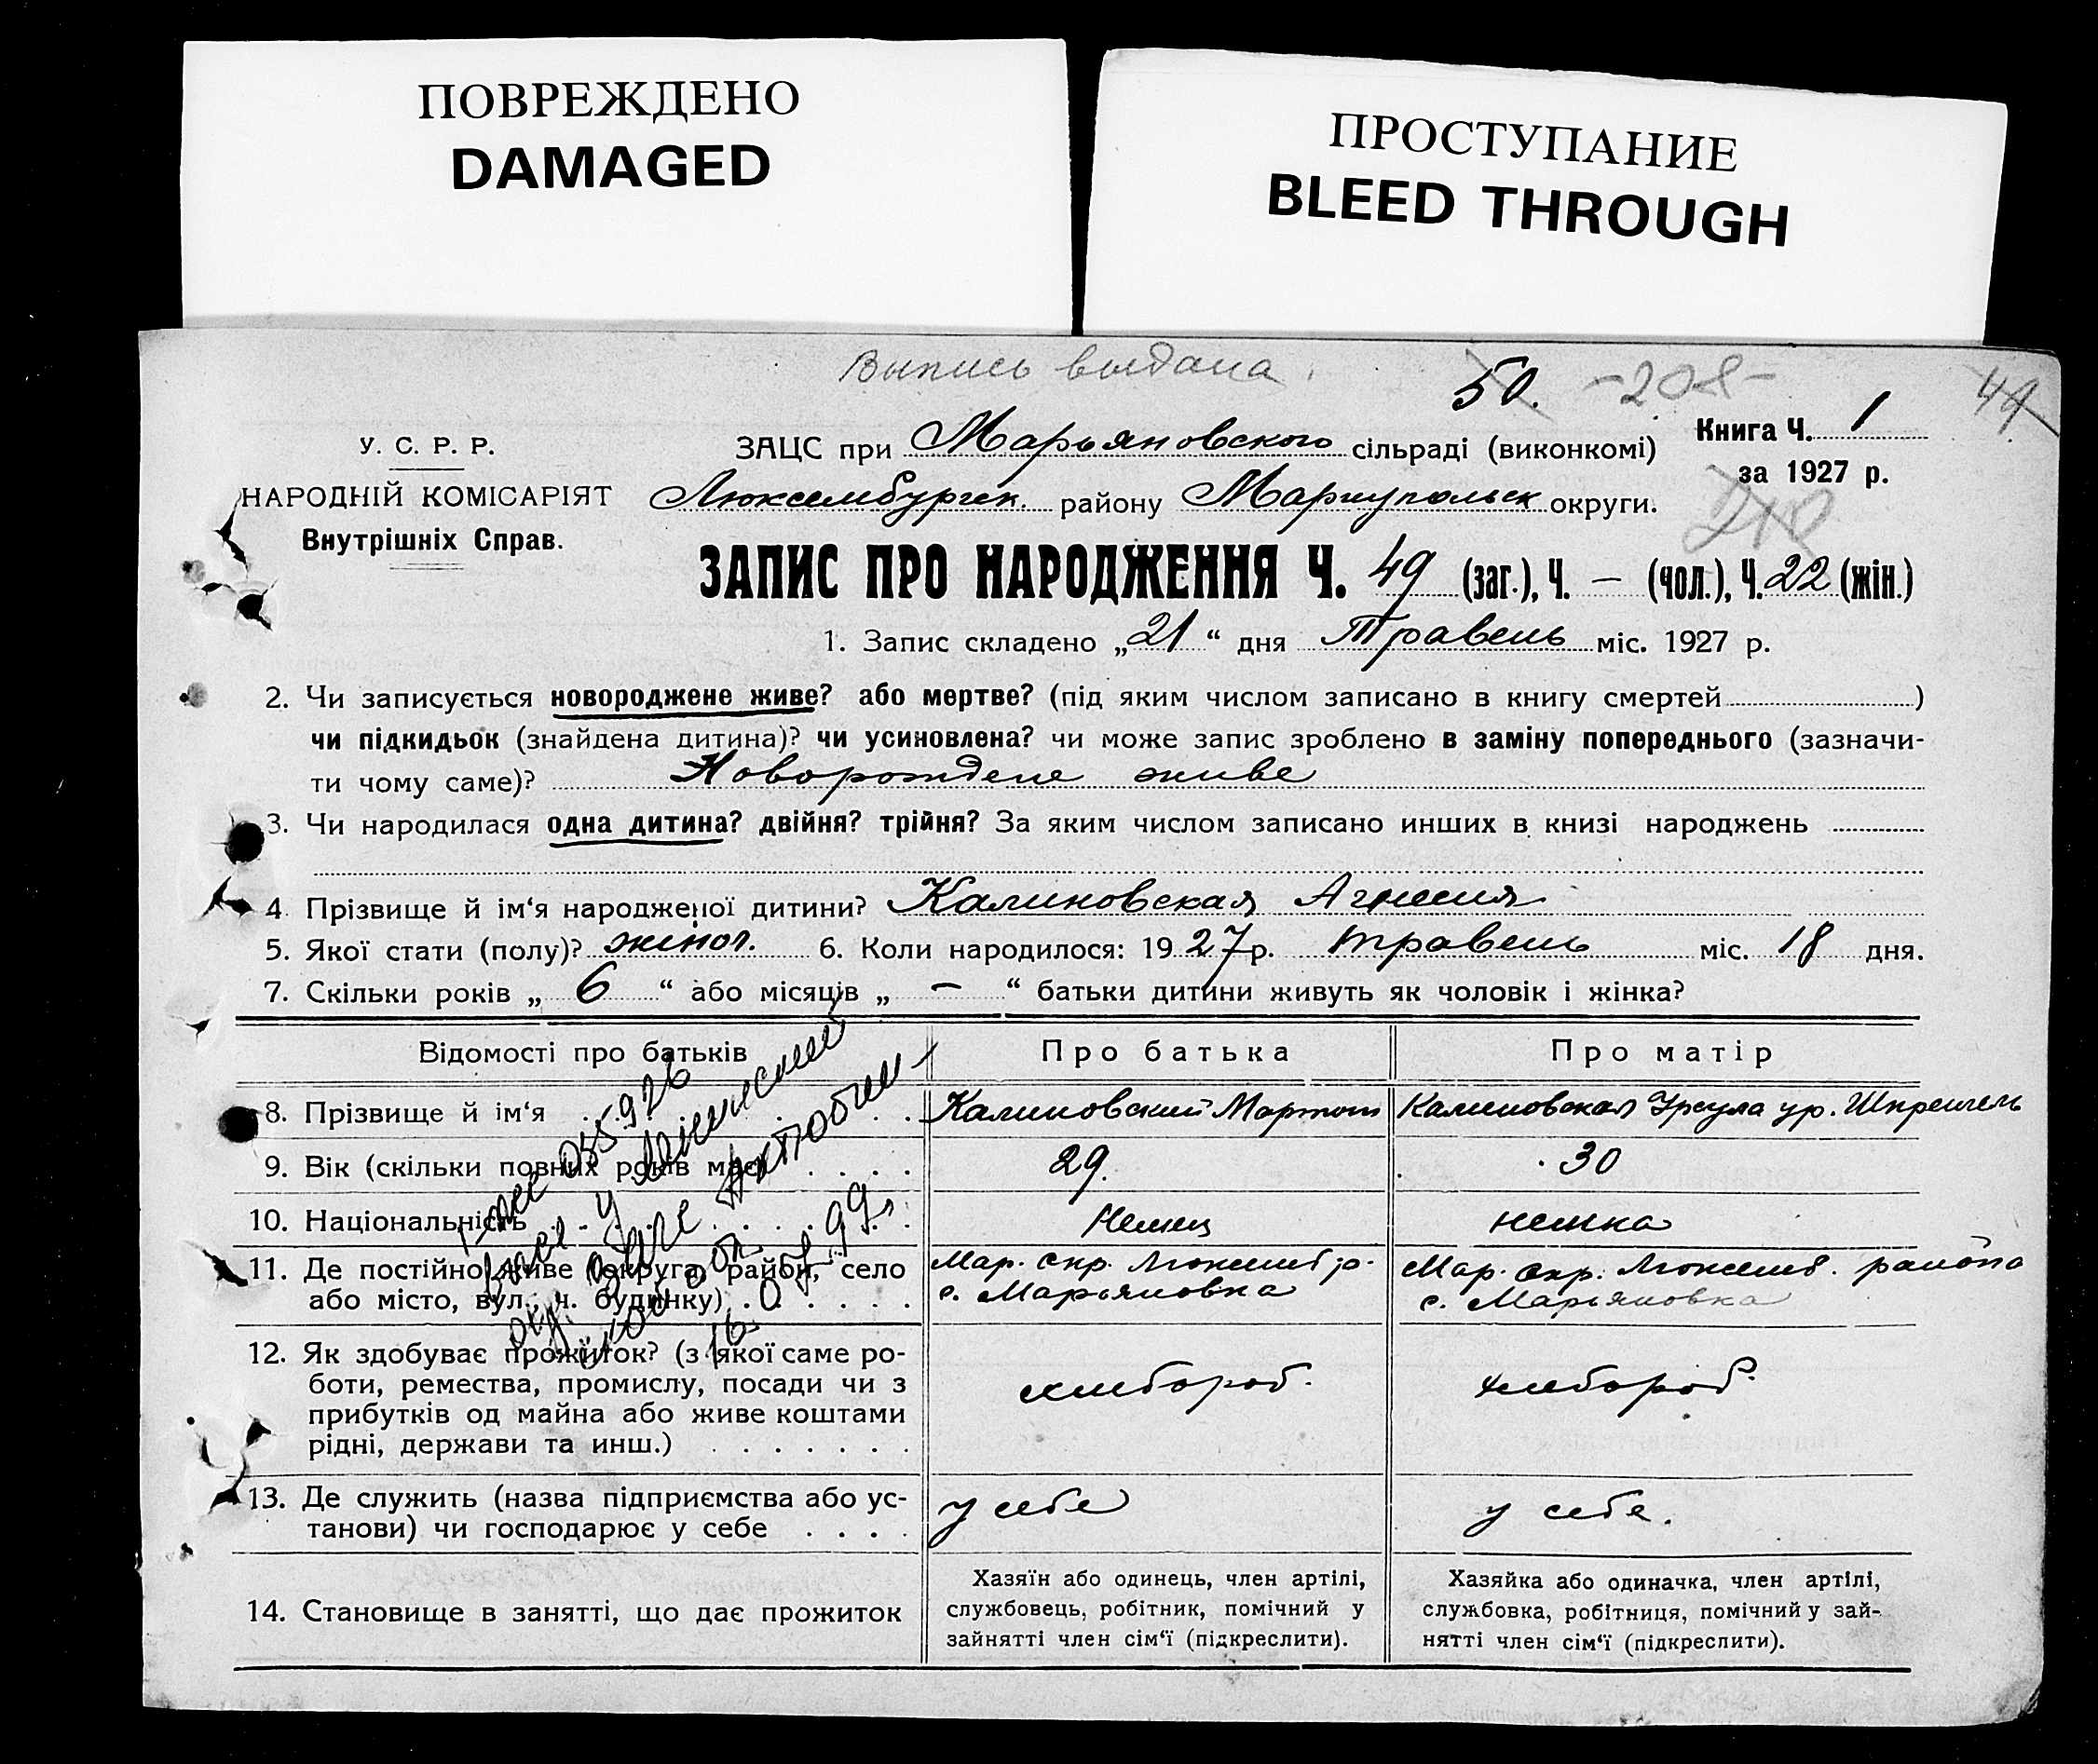 ПОВРЕЖДЕНО
DAMAGED
ПРОСТУПАНИЕ
BLEED THROUGH
Выпись выдана.
50. -208- 49
У. С. Р. Р.
НАРОДНІЙ КОМІСАРІЯТ
Внутрішніх Справ.
ЗАЦС при Марьяновского сільраді (виконкомі)
Люксембургск. району Мариупольск округи.
Книга Ч. 1
за 1927 р.
210
ЗАПИС ПРО НАРОДЖЕННЯ Ч. 49 (заг.), Ч. — (чол.), Ч. 22 (жін.)
1. Запис складено „21“ дня Травень міс. 1927 р.
2. Чи записується новороджене живе? або мертве? (під яким числом записано в книгу смертей )
чи підкидьок (знайдена дитина)? чи усиновлена? чи може запис зроблено в заміну попереднього (зазначи-
ти чому саме)? Новорождене живе
3. Чи народилася одна дитина? двійня? трійня? За яким числом записано инших в книзі народжень
4. Прізвище й ім‘я народженої дитини? Калиновская Агнесия
5. Якої стати (полу)? жіноч. 6. Коли народилося: 1927 р. травень міс. 18 дня.
7. Скільки років „ 6 “ або місяців „ — “ батьки дитини живуть як чоловік і жінка?
Відомості про батьків
Про батька
Про матір
8. Прізвище й ім‘я
Калиновский Мартин
Калиновская Урсула ур. Шпренгель
9. Вік (скільки повних років має)
29.
30
10. Національність
Немец
немка
11. Де постійно живе (округа, район, село
або місто, вул., ч. будинку)
Мар. окр. Люксемб р.
с. Марьяновка
Мар. окр. Люксемб. района
с. Марьяновка
12. Як здобуває прожиток? (з якої саме ро-
боти, ремества, промислу, посади чи з
прибутків од майна або живе коштами
рідні, держави та инш.)
хлебороб.
хлебороб.
13. Де служить (назва підприємства або ус-
танови) чи господарює у себе
у себе
у себе.
14. Становище в занятті, що дає прожиток
Хазяїн або одинець, член артілі,
службовець, робітник, помічний у
зайнятті член сім‘ї (підкреслити).
Хазяйка або одиначка, член артілі,
службовка, робітниця, помічний у зай-
нятті член сім‘ї (підкреслити).